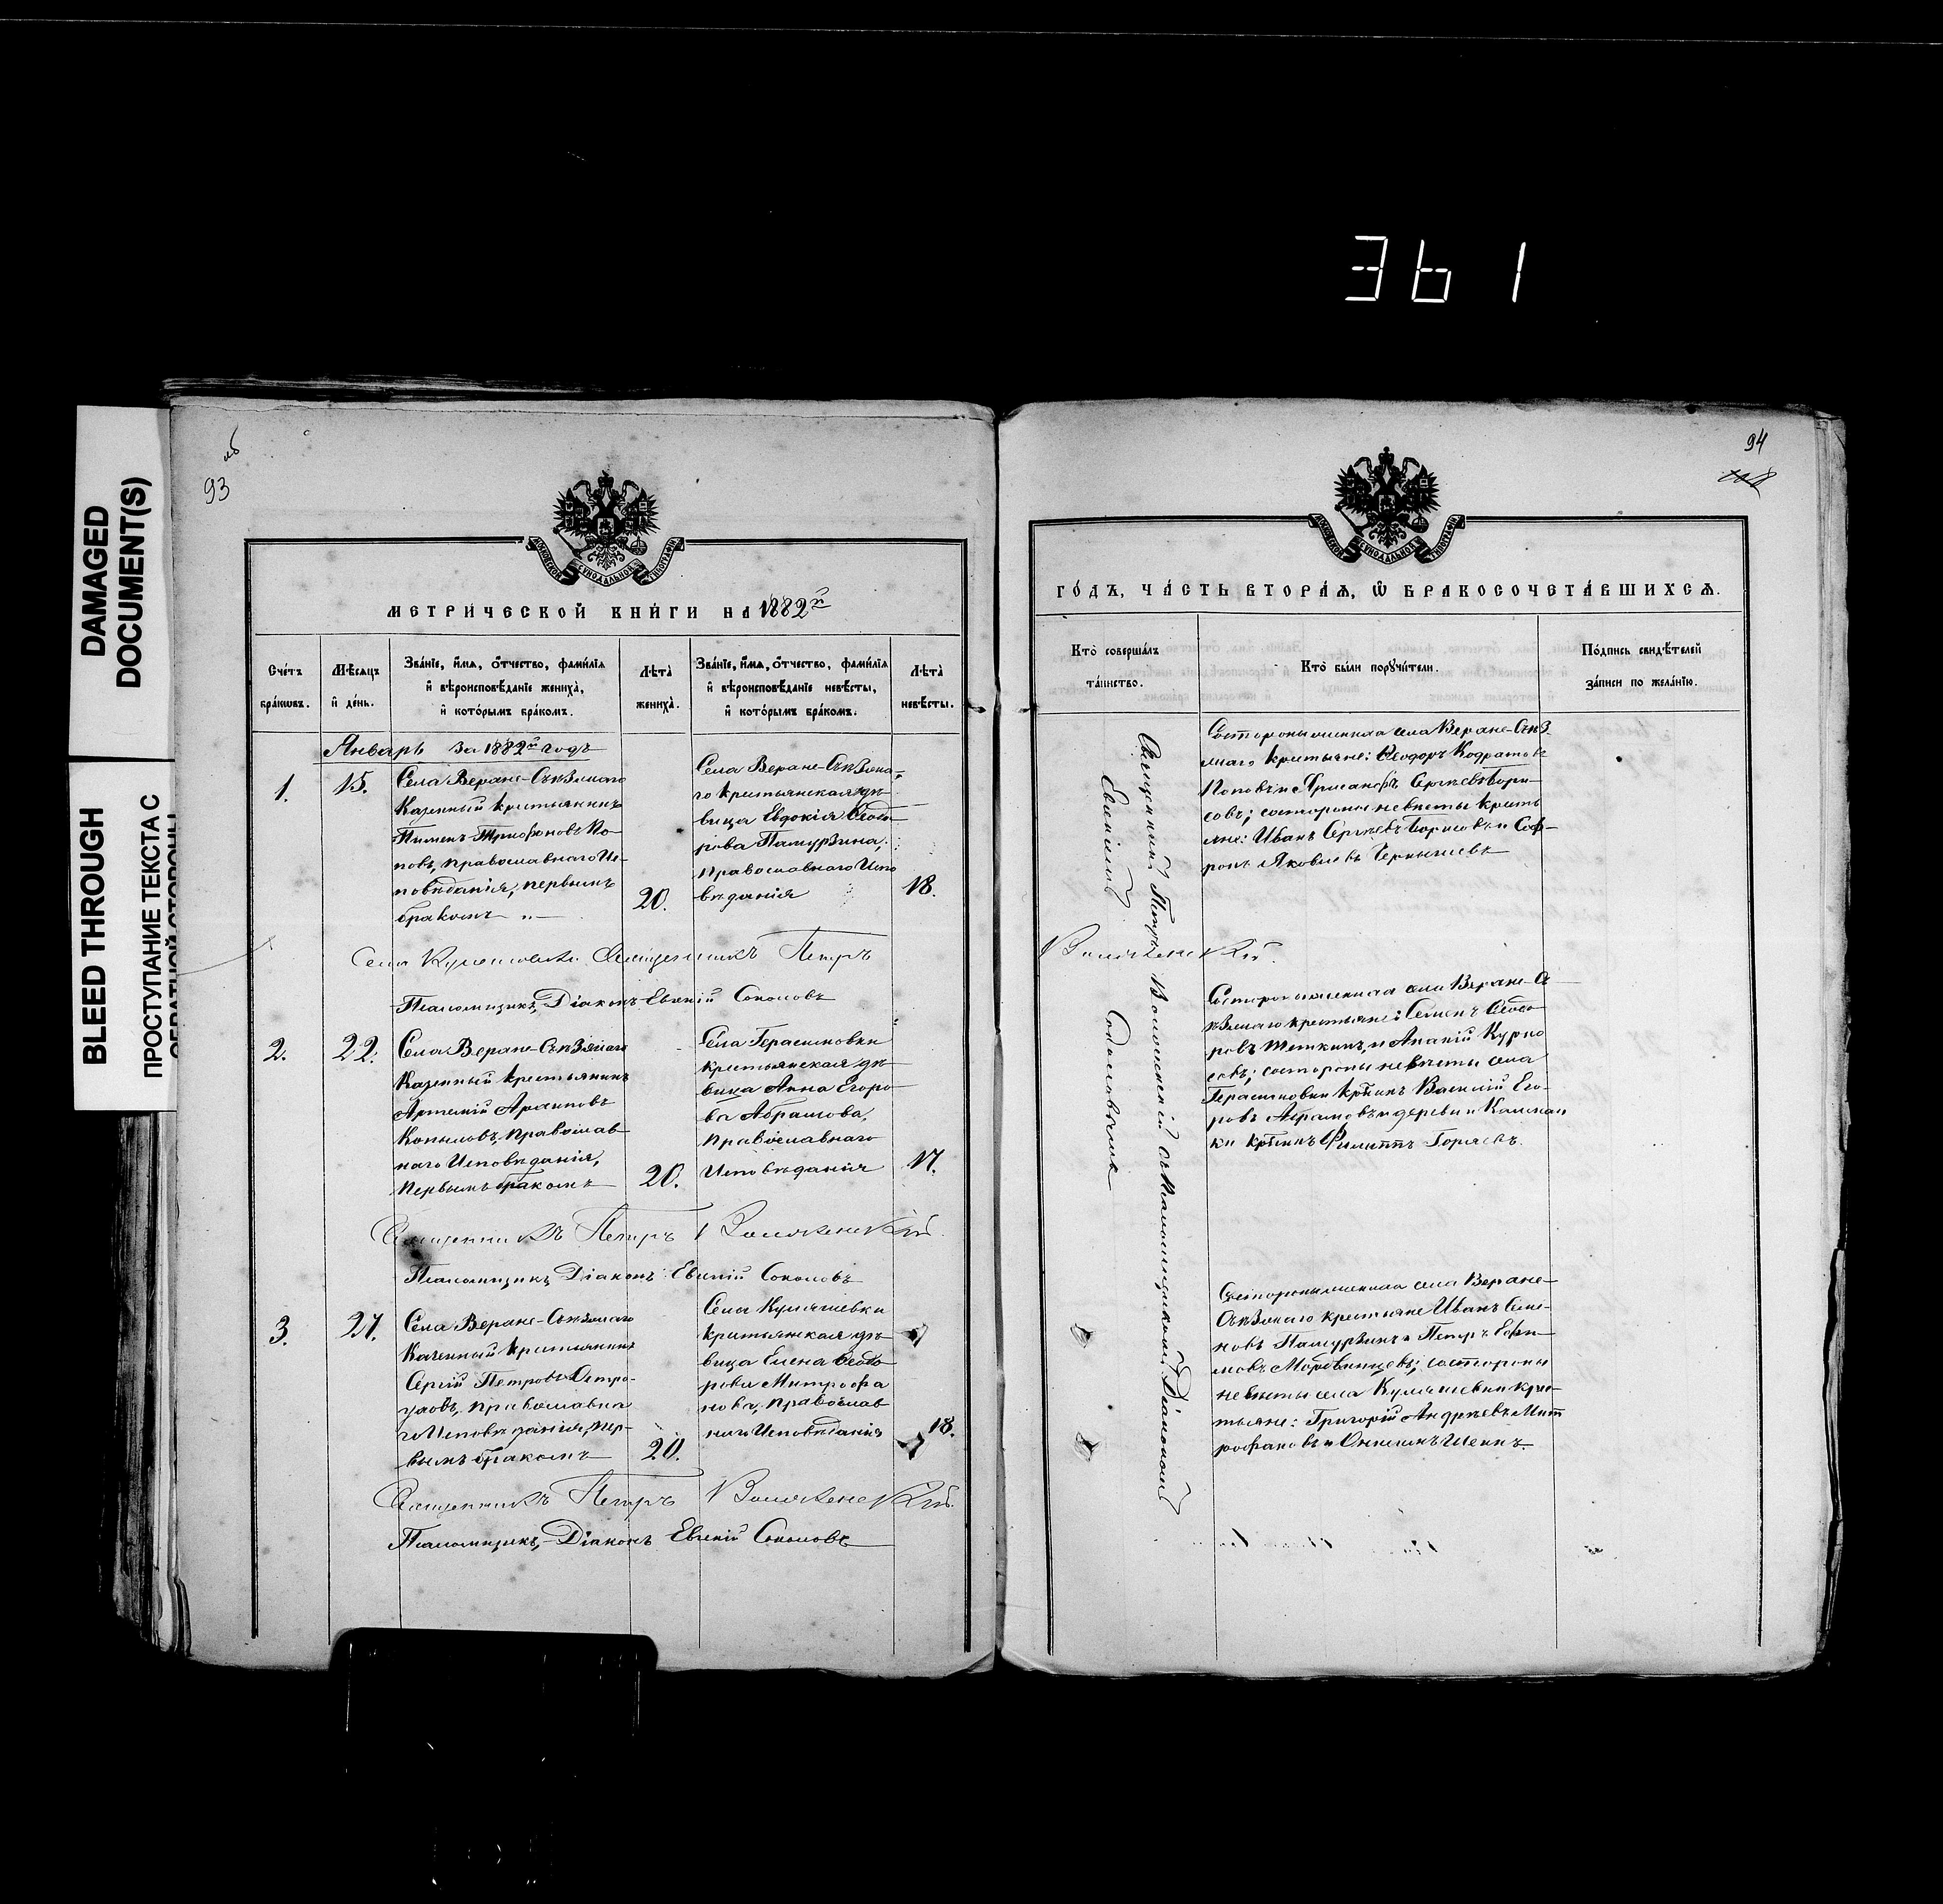 361
DAMAGED
DOCUMENT(S)
BLEED THROUGH
ПРОСТУПАНИЕ ТЕКСТА С
ОБРАТНОЙ СТОРОНЫ
93
МОСКОВСКОЙ СѴНОДАЛЬНОЙ ТИПОГРАФІИ
МЕТРИ́ЧЕСКОЙ КНИ́ГИ НА 1882й
Сче́тъ бра́кѡвъ.
Мѣ́сяцъ и҆ де́нь.
Зва́нїе, и҆́мѧ, ѻ҆́тчество, фами́лїѧ
и҆ вѣроисповѣ́данїе жениха̀,
и҆ кото́рымъ бра́комъ.
Лѣта̀ жениха̀.
Зва́нїе, и҆́мѧ, ѻ҆́тчество, фами́лїѧ
и҆ вѣроисповѣ́данїе невѣ́сты,
и҆ кото́рымъ бра́комъ.
Лѣта̀ невѣ́сты.
Январь за 1882й годъ
1.
15.
Села Верхне-Съѣзжаго
Казенный крестьянинъ
Пименъ Трифоновъ По-
повъ, православнаго Ис-
повѣданія, первымъ
бракомъ
20.
Села Верхне-Съѣзжа-
го крестьянская дѣ-
вица Евдокія Ѳеодо-
рова Памурзина,
Православнаго Испо
вѣданія
18.
Села Кулешовки Священникъ Петръ
Псаломщикъ, Діаконъ Евгеній Соколовъ
2.
22.
Села Верхне-Съѣзжаго
Казенный крестьянинъ
Артемій Архиповъ
Копыловъ, Православ
наго Исповѣданія,
Первымъ бракомъ
20.
Села Герасимовки
крестьянская дѣ-
вица Анна Егоро-
ва Абрамова,
Православнаго
Исповѣданія
17.
Священникъ Петръ
Псаломщикъ, Діаконъ Евгеній Соколовъ
3.
27.
Села Верхне-Съѣзжаго
Казенный крестьянинъ
Сергій Петровъ
православна
го Исповѣданія, пер-
вымъ бракомъ
20.
крестьянская дѣ-
вица Елена Ѳеодо
рова Митрофа
нова, Православ
наго Исповѣданія
18.
Священникъ Петръ
Псаломщикъ, Діаконъ Евгеній Соколовъ
94
МОСКОВСКОЙ СѴНОДАЛЬНОЙ ТИПОГРАФІИ
ГО́ДЪ, ЧА́СТЬ ВТОРА́Ѧ, Ѽ БРАКОСОЧЕТА́ВШИХСѦ.
Кто̀ соверша́лъ
та́инство.
Кто̀ бы́ли порꙋчи́тели.
По́дпись свидѣ́телей
за́писи по жела́нїю.
Священникъ Петръ съ Псаломщикомъ Діакономъ
Евгеніемъ Соколовымъ
Со стороны жениха села Верхне-Съѣз
жаго крестьяне: Ѳеодоръ Кодратовъ
Поповъ и Борисовъ
совъ; со стороны невѣсты кресть
яне: Иванъ Сергѣевъ Борисовъ и Соф-
ронъ Яковлевъ Чернышевъ
Со стороны жениха села Верхне-Съ
ѣзжаго крестьяне: Семенъ Ѳеодо
ровъ и Ананій Курно
совъ; со стороны невѣсты села
Герасимовки Василій Его-
ровъ Абрамовъ и деревни
Филиппъ Горячевъ.
Со стороны жениха села Верхне-
Съѣзжаго крестьяне Иванъ Семе-
новъ Памурзинъ и Петръ Ефи-
мовъ со стороны
невѣсты села крес-
тьяне: Григорій Андреевъ Мит
рофановъ и